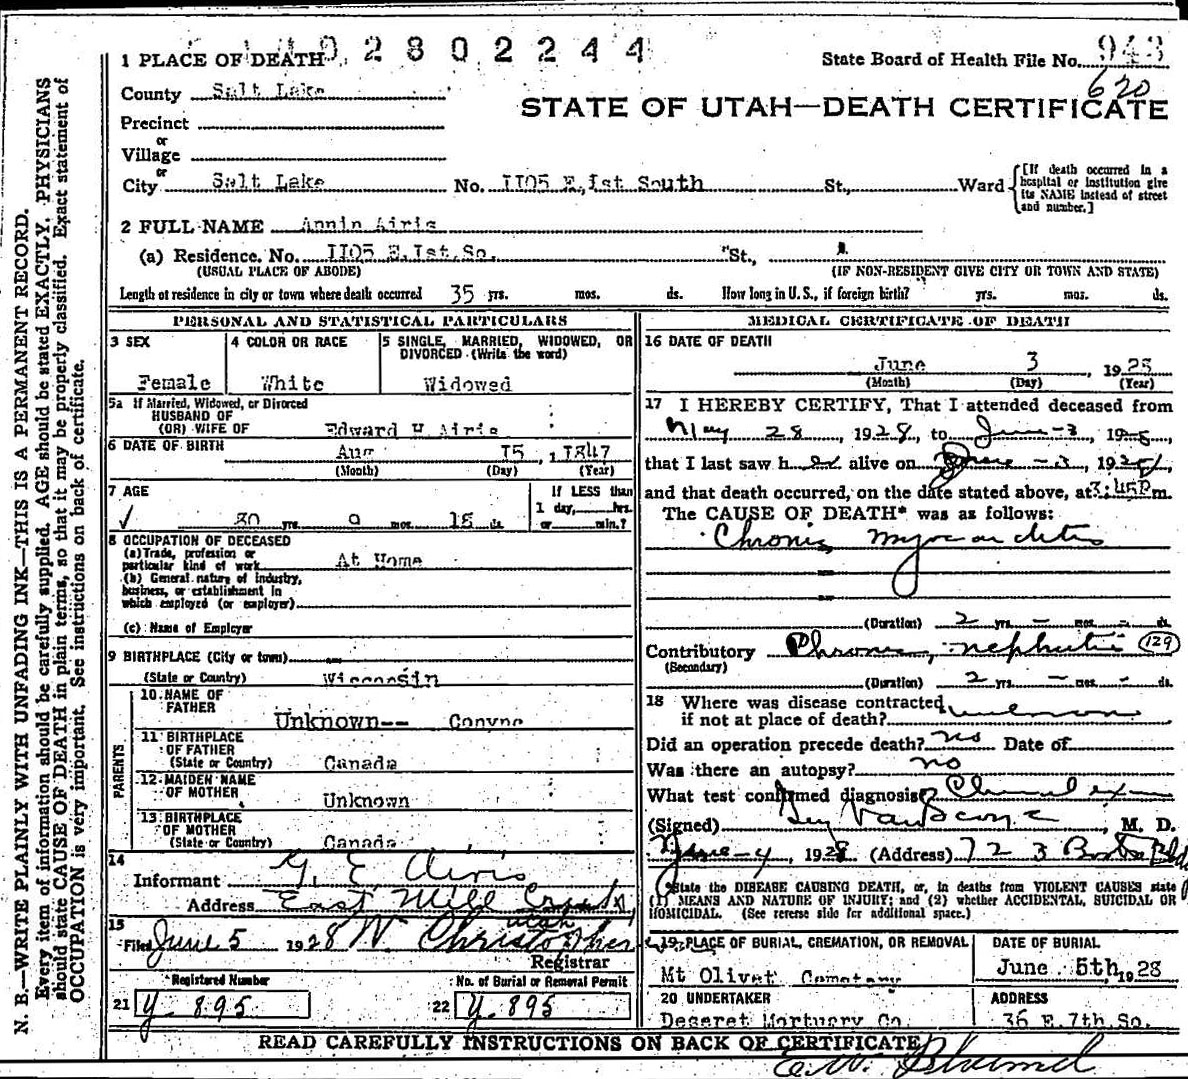 2802244
1 PLACE OF DEATH
State Board of Health File No. 943
620
County Salt Lake
STATE OF UTAH—DEATH CERTIFICATE
Precinct
or
Village
or
City Salt Lake No. 1105 E. 1st South St., Ward [If death occurred in a hospital or institution give its NAME instead of street and number.]
2 FULL NAME Annin Airis
(a) Residence. No. 1105 E. 1st. So. St.,
(USUAL PLACE OF ABODE) (IF NON-RESIDENT GIVE CITY OR TOWN AND STATE)
Length of residence in city or town where death occurred 35 yrs. mos. ds. How long in U.S., if foreign birth? yrs. mos. ds.
PERSONAL AND STATISTICAL PARTICULARS
3 SEX
Female
4 COLOR OR RACE
White
5 SINGLE, MARRIED, WIDOWED, OR
DIVORCED (Write the word)
Widowed
5a If Married, Widowed, or Divorced
HUSBAND OF
(OR) WIFE OF Edward H Airis
6 DATE OF BIRTH Aug 15, 1847
(Month) (Day) (Year)
7 AGE
80 yrs. 9 mos. 18 ds.
If LESS than
1 day, hrs.
or min.?
8 OCCUPATION OF DECEASED
(a) Trade, profession or
particular kind of work At Home
(b) General nature of industry,
business, or establishment in
which employed (or employer)
(c) Name of Employer
9 BIRTHPLACE (City or town)
(State or Country) Wisconsin
PARENTS
10 NAME OF
FATHER Unknown-- Conyne
11 BIRTHPLACE
OF FATHER
(State or Country) Canada
12 MAIDEN NAME
OF MOTHER Unknown
13 BIRTHPLACE
OF MOTHER
(State or Country) Canada
14
Informant G. E. Airis
Address East Mill Creek
Utah
15
Filed June 5 1928 W Christopher
Registrar
Registered Number
21 Y 895
No. of Burial or Removal Permit
22 Y 895
MEDICAL CERTIFICATE OF DEATH
16 DATE OF DEATH
June 3, 1928
(Month) (Day) (Year)
17 I HEREBY CERTIFY, That I attended deceased from
May 28, 1928, to June 3, 1928,
that I last saw her alive on June 3, 1928,
and that death occurred, on the date stated above, at 3:45P m.
The CAUSE OF DEATH* was as follows:
Chronic myocarditis
(Duration) 2 yrs. mos. ds.
Contributory Chronic nephritis 129
(Secondary)
(Duration) 2 yrs. mos. ds.
18 Where was disease contracted
if not at place of death? unknown
Did an operation precede death? no Date of
Was there an autopsy? no
What test confirmed diagnosis? Clinical exam
(Signed) M. D.
June 4, 1928 (Address) 723 Boston Bldg
*State the DISEASE CAUSING DEATH, or, in deaths from VIOLENT CAUSES state
(1) MEANS AND NATURE OF INJURY; and (2) whether ACCIDENTAL, SUICIDAL OR
HOMICIDAL. (See reverse side for additional space.)
19 PLACE OF BURIAL, CREMATION, OR REMOVAL
Mt Olivet Cemetery
DATE OF BURIAL
June 5th, 1928
20 UNDERTAKER
Deseret Mortuary Co.
ADDRESS
36 E. 7th So.
READ CAREFULLY INSTRUCTIONS ON BACK OF CERTIFICATE
N. B.—WRITE PLAINLY WITH UNFADING INK—THIS IS A PERMANENT RECORD.
Every item of information should be carefully supplied. AGE should be stated EXACTLY. PHYSICIANS
should state CAUSE OF DEATH in plain terms, so that it may be properly classified. Exact statement of
OCCUPATION is very important. See instructions on back of certificate.